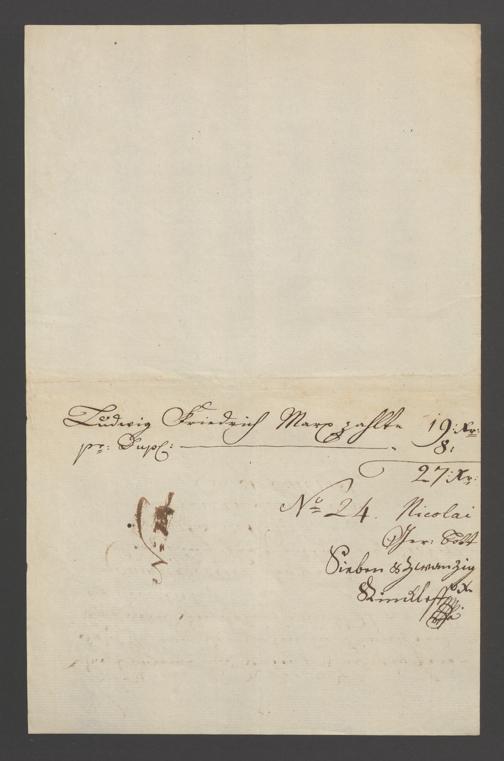 Ludwig Friedrich Marx zahlte 19: Xr:
pr: Dupl: 8:
27: Xr:
No 24. Nicolai
Sieben & Zwanzig Xr
No